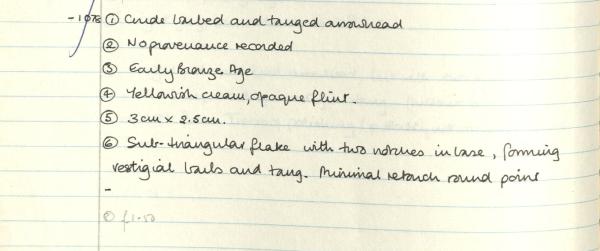 -1078 ① Crude barbed and tanged arrowhead
② No provenance recorded
③ Early Bronze Age
④ Yellowish cream, opaque flint.
⑤ 3cm x 2.5cm.
⑥ Sub-triangular flake with two notches in base, forming
vestigial barbs and tang. Minimal retouch round point
-
£1.50